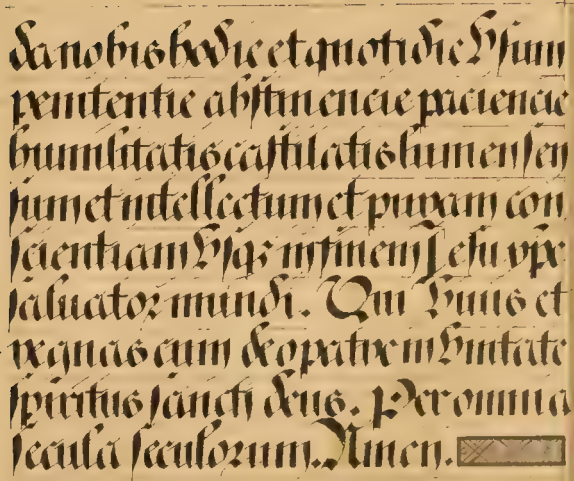 da nobis hodie et quotidie Vsum
penitentie abstinencie paciencie
humilitatis castitatis lumen sen
sum et intellectum et puram con
scientiam Vsqz in finem Iesu xpe
saluator mundi. Qui Viuis et
regnas cum deo patre in Vnitate
spiritus sancti deus. Per omnia
secula seculorum. Amen.